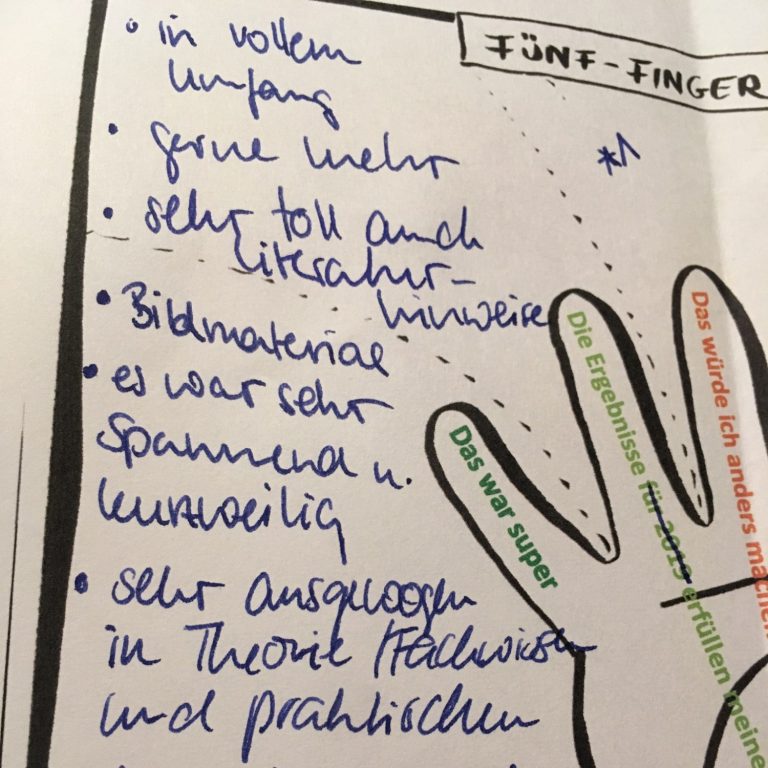 • in vollem
Umfang
• gerne mehr
• sehr toll auch
Literatur-
hinweise
• Bildmaterial
• es war sehr
spannend u.
kurzweilig
• sehr ausgewogen
in Theorie /Fachwissen
und praktischen
FÜNF-FINGER
*1
Das war super
Die Ergebnisse für 2019 erfüllen meine
Das würde ich anders machen